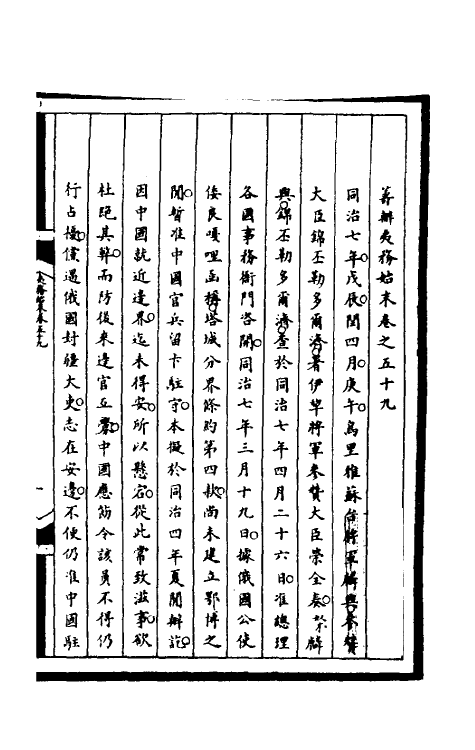 籌辦夷務始末卷之五十九
同治七年戊辰閏四月庚午烏里雅蘇台將軍麟興參贊
大臣錦丕勒多爾濟署伊犂將軍參贊大臣榮全奏麟
興錦丕勒多爾濟查於同治七年四月二十六日准總理
各國事務衙門咨開同治七年三月十九日據俄國公使
倭良嘎哩函稱塔城分界條約第四款尚未建立鄂博之
間暫准中國官兵留卡駐守本擬於同治四年夏間辦訖
因中國就近邊界迄未得安所以懸宕從此常致滋事欲
杜絕其弊而防後來邊官互釁中國應飭令該員不得仍
行占擾儻遇俄國封疆大吏志在安邊不便仍准中國駐
夷務始末卷五十九